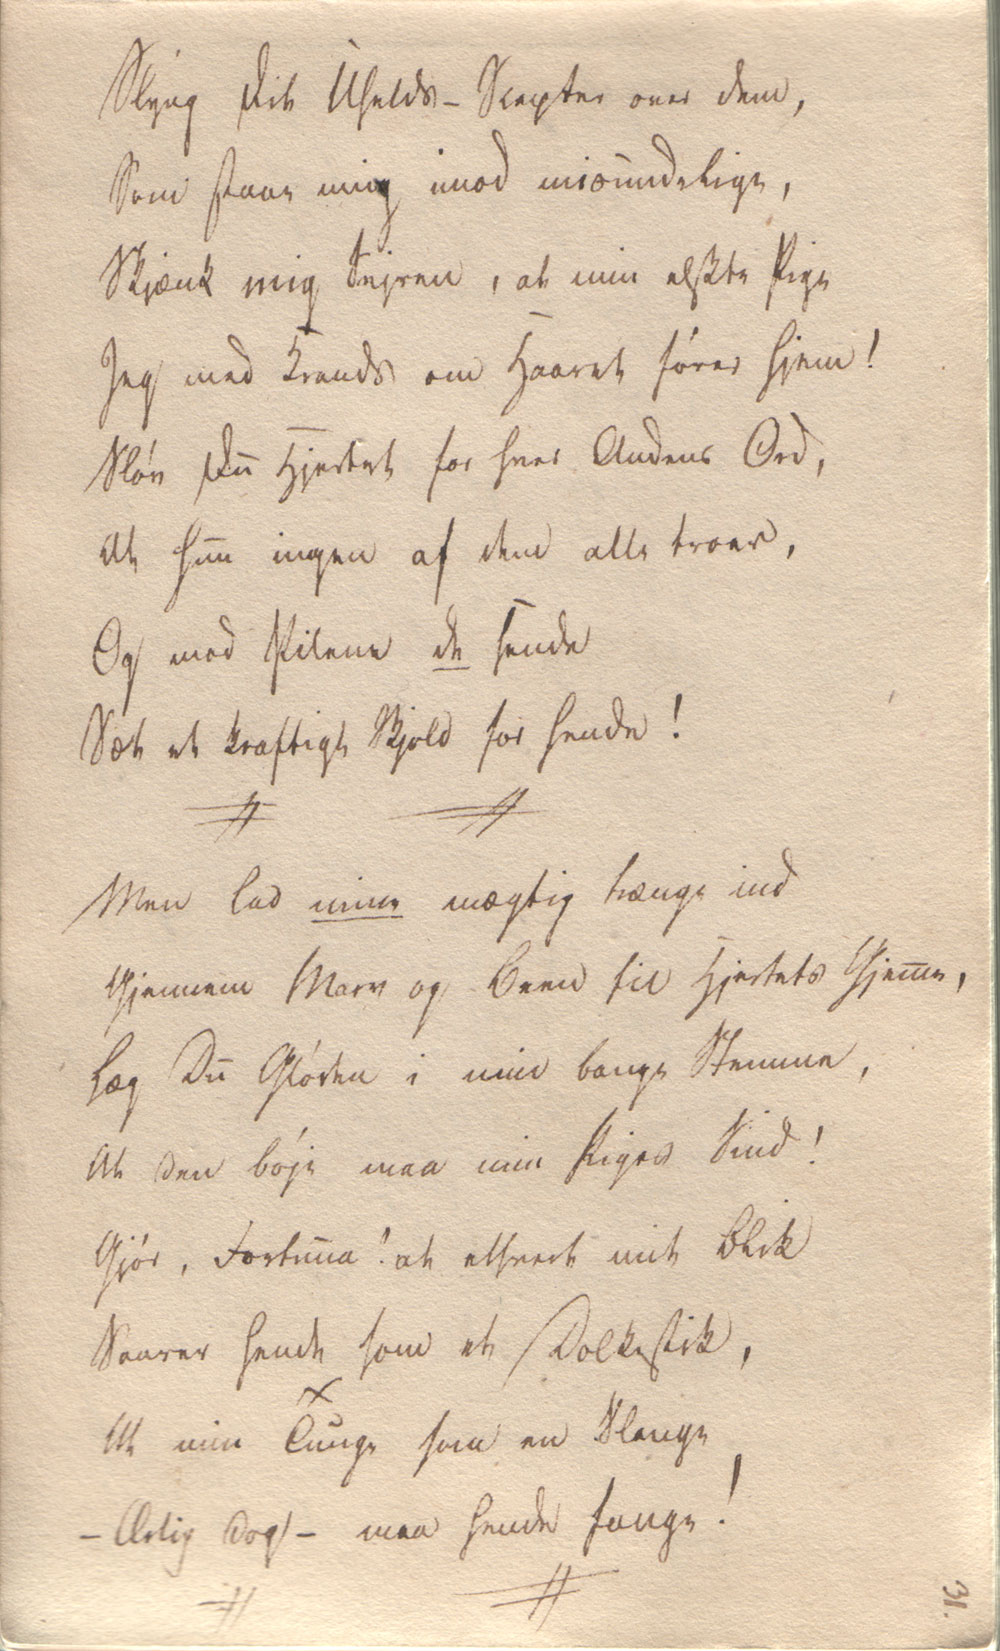 Slyng Dit Uhelds-Scepter over dem,
Som staae mig imod misundelige,
Skjænk mig Sejren, at min elskte Pige
Jeg med Krands om Haaret fører hjem!
Sløv Du Hjertet for hver Andens Ord,
At hun ingen af dem alle troer,
Og mod Pilene de sende
Sæt et kraftigt Skjold for hende!
Men lad mine mægtig trænge ind
Gjennem Marv og Been til Hjertets Gjemme,
Læg Du Gløden i min bange Stemme,
At den bøje maa min Piges Sind!
Gjør, Fortuna! at ethvert mit Blik
Saarer hende som et Dolkestik,
At min Tunge som en Slange
- Ærlig dog - maa hende fange!
31.